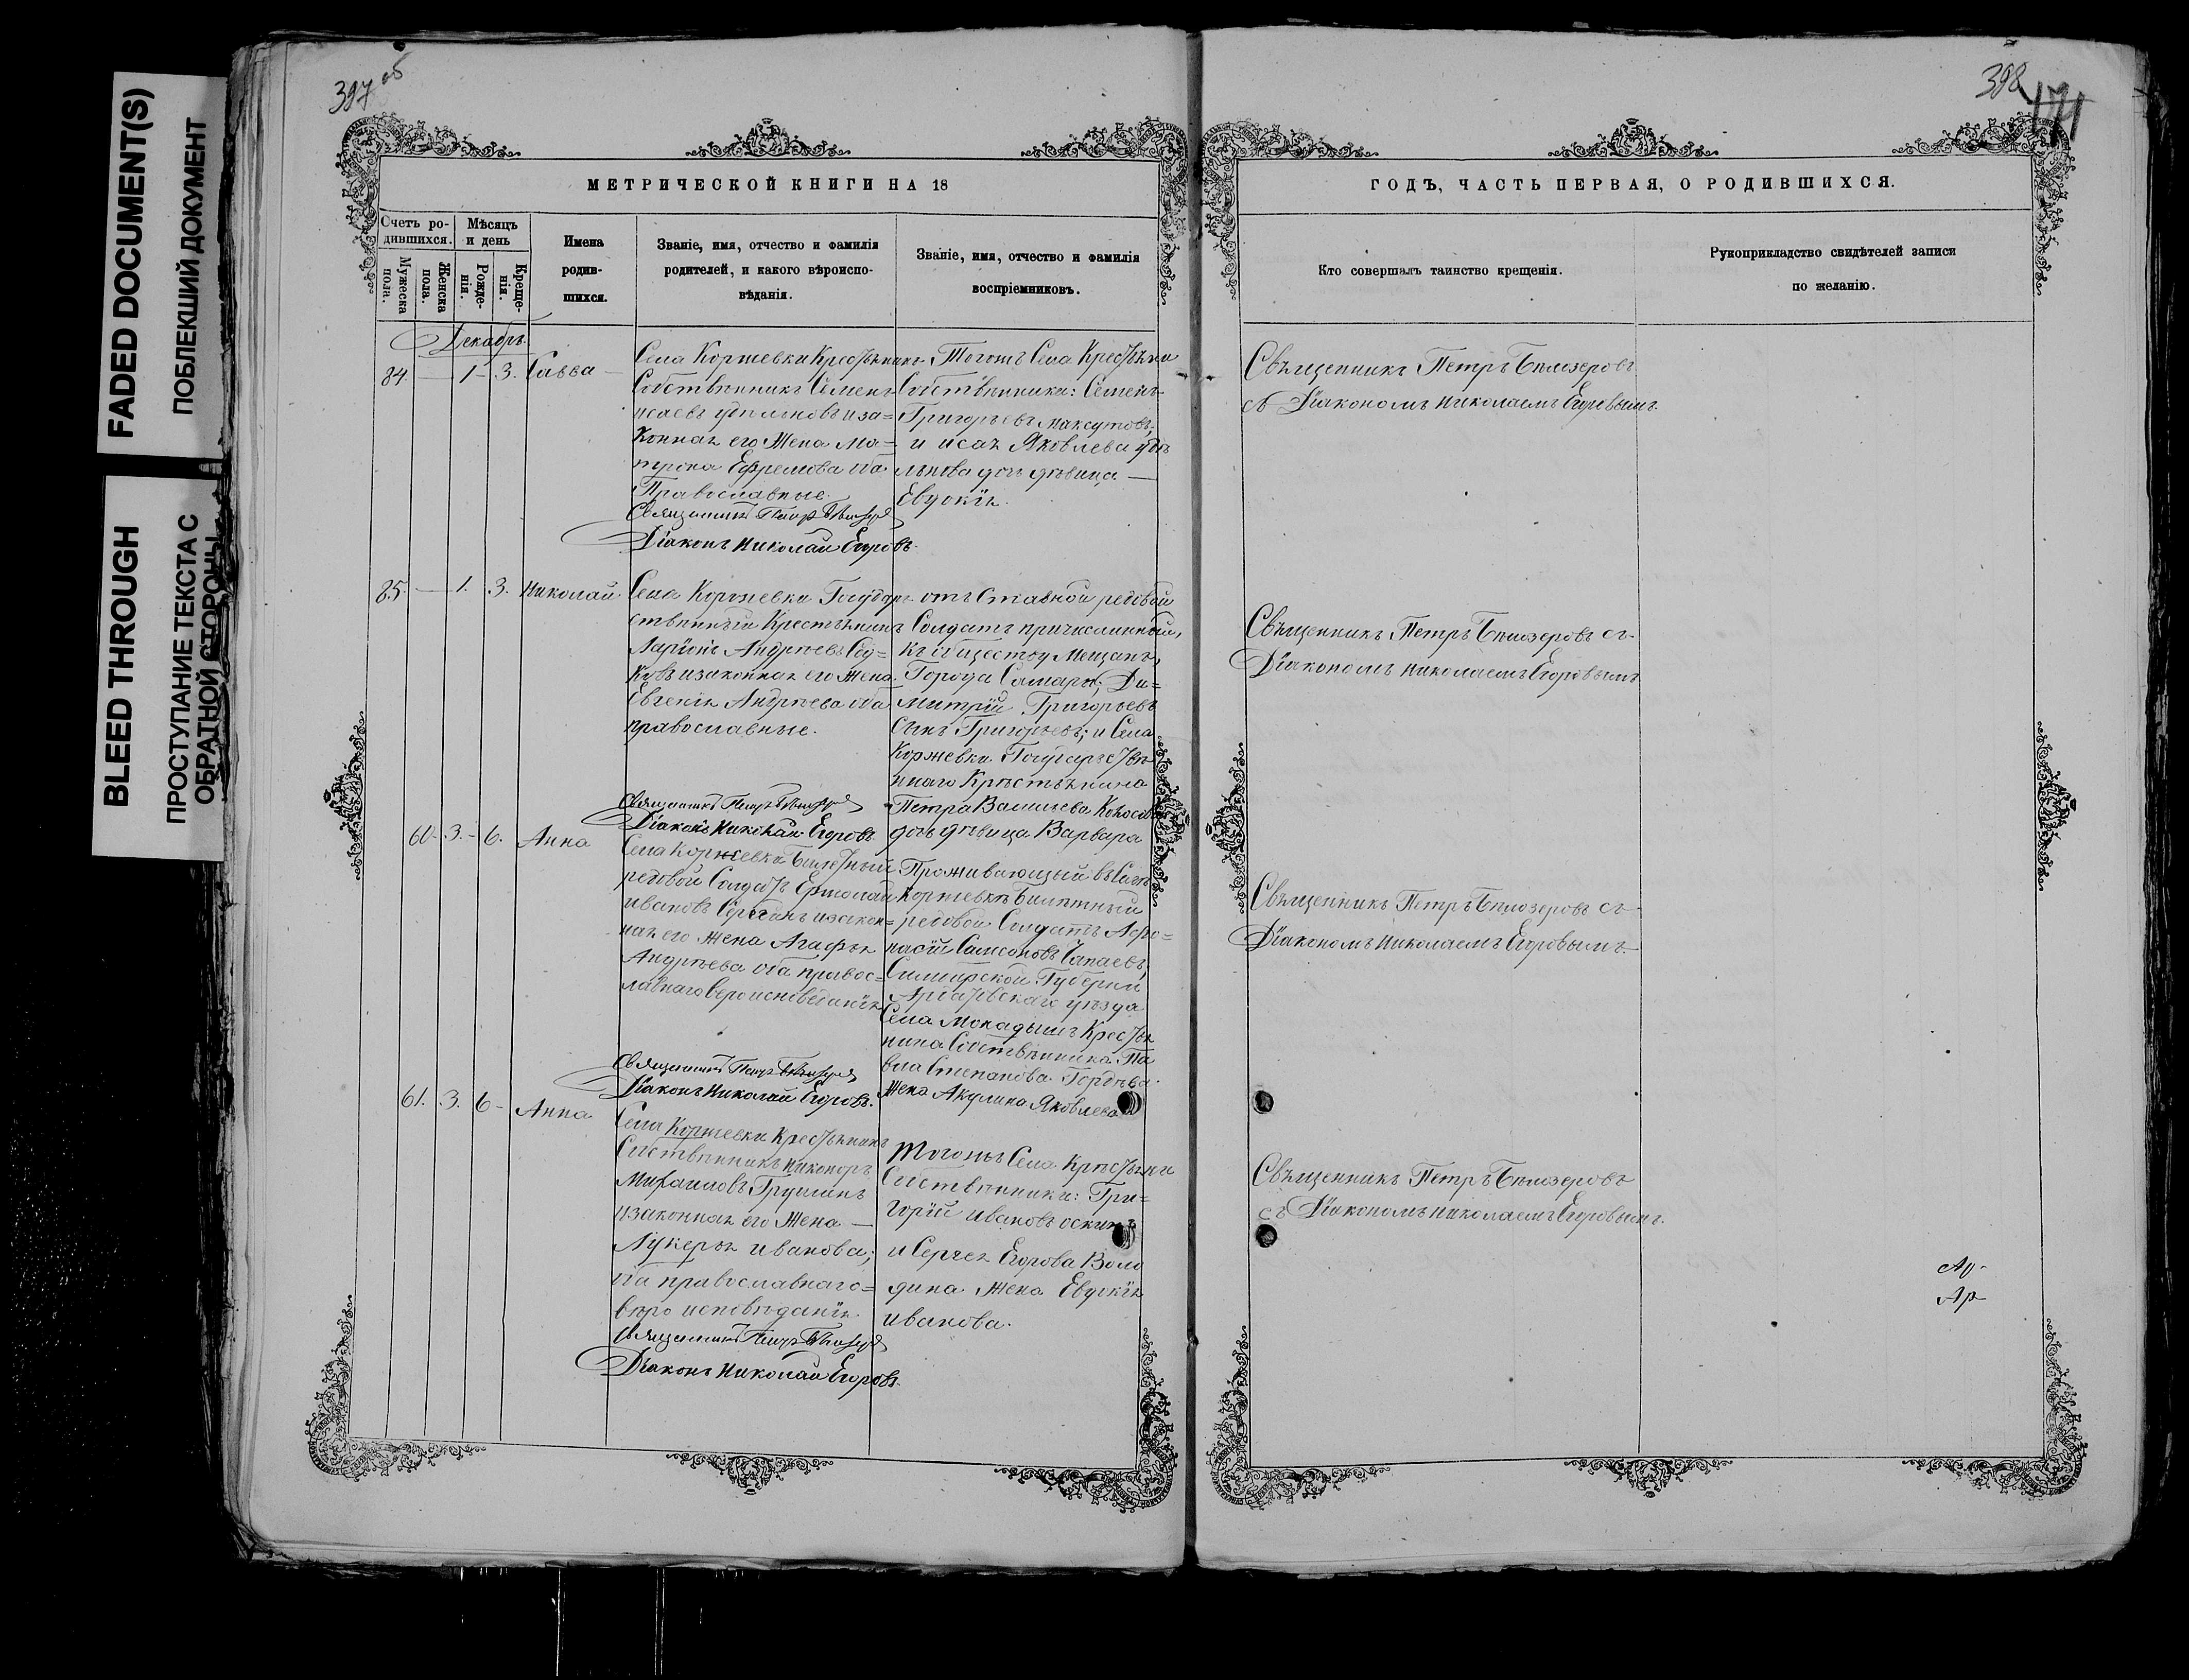 FADED DOCUMENT(S)
ПОБЛЕКШИЙ ДОКУМЕНТ
BLEED THROUGH
ПРОСТУПАНИЕ ТЕКСТА С
ОБРАТНОЙ СТОРОНЫ
397 об
МЕТРИЧЕСКОЙ КНИГИ НА 18
Счетъ ро-
дившихся.
Мѣсяцъ
и день
Мужеска
пола.
Женска
пола.
Рожде-
нія.
Креще-
нія.
Имена
родив-
шихся.
Званіе, имя, отчество и фамилія
родителей, и какого вѣроиспо-
вѣданія.
Званіе, имя, отчество и фамилія
воспріемниковъ.
Декабрь
84. — 1 - 3. Савва —
Села Коржевки Крестьянинъ
Собственникъ Семенъ
Исаевъ иза=
конная его Жена Ма=
трона Ефремова оба
Православные.
Священникъ Петръ Бѣлозеровъ
Діаконъ Николай Егоровъ.
Тогожъ Села Крестьяни
Собственники: Семенъ
Григорьевъ Максутовъ;
и Исая Яковлева
дочь дѣвица —
Евдокія.
85. — 1. 3. Николай
Села Коржевки Государ-
ственный Крестьянинъ
Ларіонъ Андреевъ
изаконная его Жена
Евгенія Андреева оба
православные.
Священникъ Петръ Бѣлозеровъ
Діаконъ Николай Егоровъ
отъ Ставной редовой
Солдатъ причисленный,
къ обществу Мещанъ,
Города Самары; Ди=
митрій Григорьевъ
Сынъ Григорьевъ; и Села
Коржевки Государстве
ннаго Крестьянина
Петра Васильева
дочь дѣвица Варвара
60. - 3. - 6. Анна
Села Коржевки Билетный
редовой Солдатъ Ермолай
Ивановъ изакон=
ная его Жена Агафья
Андреева оба правос=
лавнаго вероисповеданія
Священникъ Петръ Бѣлозеровъ
Діаконъ Николай Егоровъ.
Проживающый въ Селѣ
Коржевкѣ Билетный
редовой Солдатъ Афо=
насій Самсоновъ Чапаевъ,
Симбирской Губерніи
Ардатовскаго уѣзда
Села Мокадышъ Крестья
нина Собственника Па
вла Степанова Гордѣева
Жена Акулина Яковлева
61. 3. 6 - Анна
Села Коржевки Крестьянинъ
Собственникъ Никоноръ
Михаиловъ Грушинъ
изаконная его Жена —
Лукерья Иванова;
оба православнаго=
веро исповѣданія.
Священникъ Петръ Бѣлозеровъ
Діаконъ Николай Егоровъ.
Тогожъ Села Крестьяни
Собственники: Гри=
горій Ивановъ Оскинъ
и Сергея Егорова Воло
дина Жена Евдокія
Иванова.
398
171
ГОДЪ, ЧАСТЬ ПЕРВАЯ, О РОДИВШИХСЯ.
Кто совершалъ таинство крещенія.
Рукоприкладство свидѣтелей записи
по желанію.
Свѣщенникъ Петръ Бѣлозеровъ
съ Діакономъ Николаемъ Егоровымъ.
Свѣщенникъ Петръ Бѣлозеровъ съ-
Діакономъ Николаемъ Егоровымъ
Свѣщенникъ Петръ Бѣлозеровъ съ-
Діакономъ Николаемъ Егоровымъ.
Свѣщенникъ Петръ Бѣлозеровъ
съ Діакономъ Николаемъ Егоровымъ.